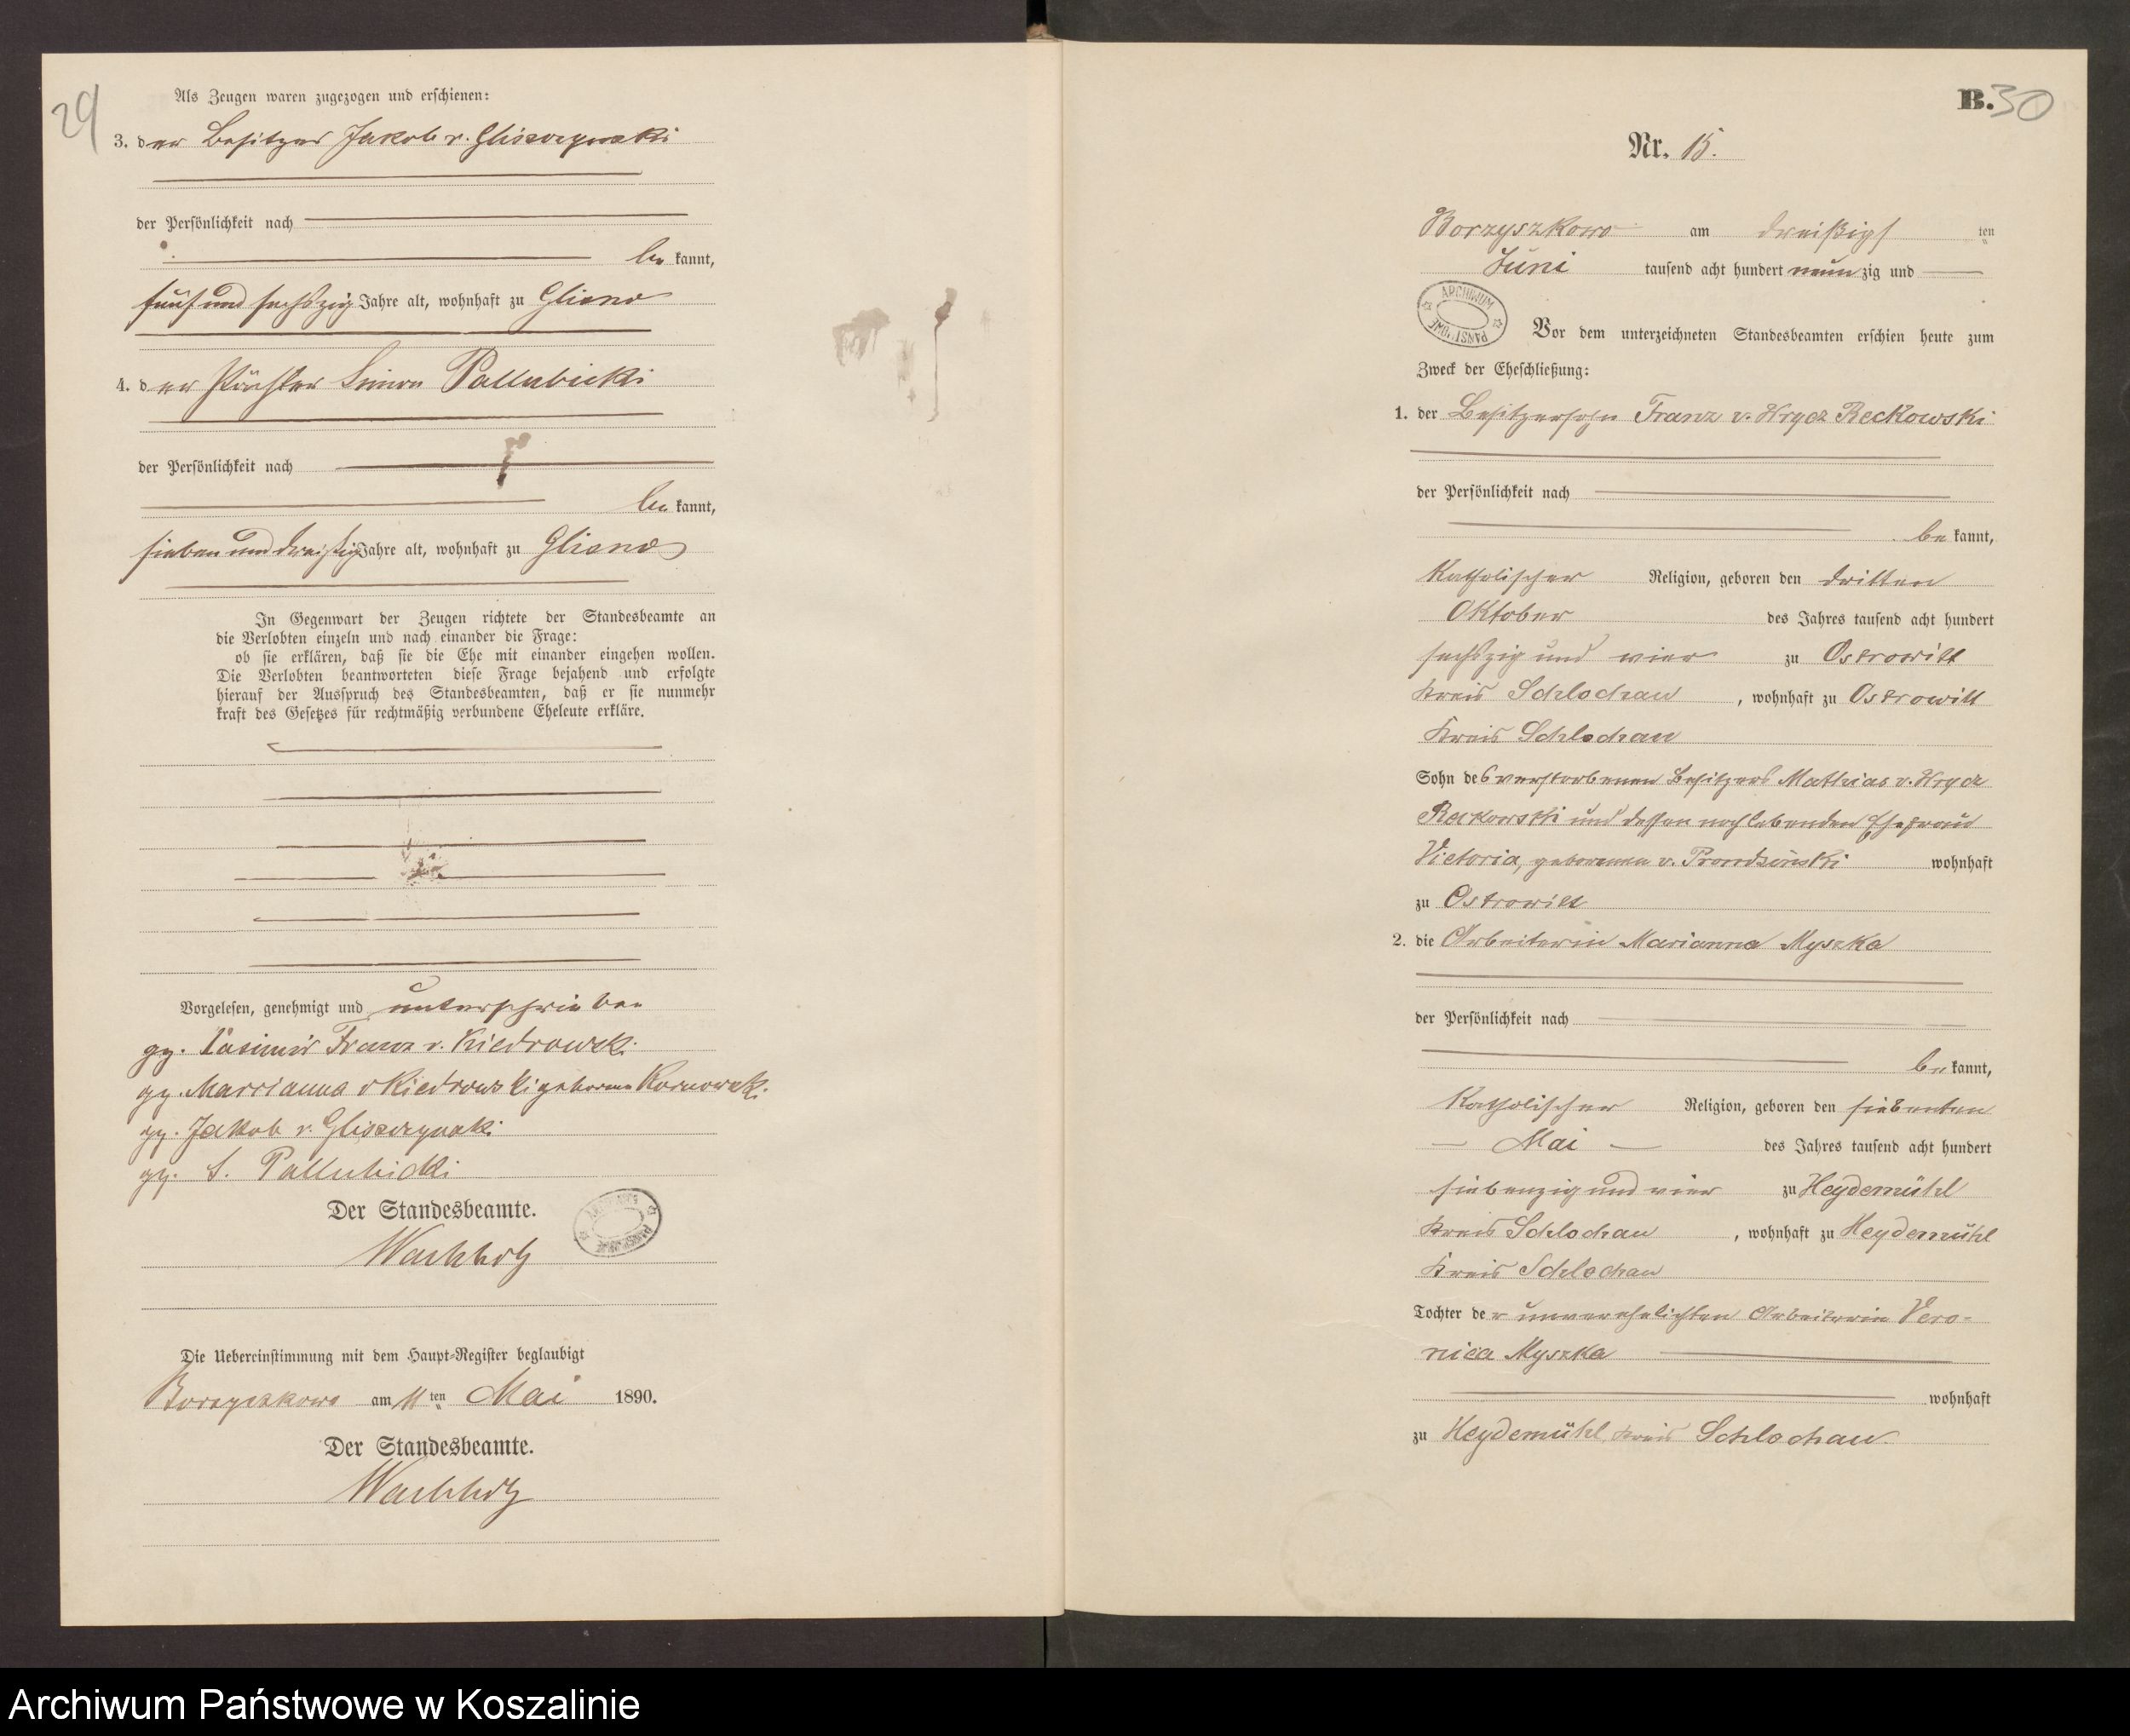 29
Als Zeugen waren zugezogen und erschienen:
3. der Besitzer Jakob v. Gliszczynski
der Persönlichkeit nach
be kannt,
fünf und sechszig Jahre alt, wohnhaft zu Gliano
4. der Pächter Simon Pallubicki
der Persönlichkeit nach
be kannt,
sieben und dreißig Jahre alt, wohnhaft zu Gliano
In Gegenwart der Zeugen richtete der Standesbeamte an
die Verlobten einzeln und nach einander die Frage:
ob sie erklären, daß sie die Ehe mit einander eingehen wollen.
Die Verlobten beantworteten diese Frage bejahend und erfolgte
hierauf der Ausspruch des Standesbeamten, daß er sie nunmehr
kraft des Gesetzes für rechtmäßig verbundene Eheleute erkläre.
Vorgelesen, genehmigt und unterschrieben
gz. Casimir Franz v. Kiedrowski
gz. Marrianna v Kiedrowski geborene Kornowski.
gz. Jakob v. Gliszczynski
gz. S. Pallubicki
Der Standesbeamte.
Wachholz
Die Uebereinstimmung mit dem Haupt-Register beglaubigt
Borzyszkowo am 11 ten Mai 1890.
Der Standesbeamte.
Wachholz
B. 30
Nr. 15.
Borzyszkowo am dreißigsten
Juni tausend acht hundert neunzig und
ARCHIWUM PAŃSTWOWE
Vor dem unterzeichneten Standesbeamten erschien heute zum
Zweck der Eheschließung:
1. der Besitzersohn Franz v. Wrycz Reckowski
der Persönlichkeit nach
be kannt,
Katholischer Religion, geboren den dritten
Oktober des Jahres tausend acht hundert
sechszig und vier zu Ostrowitt
Kreis Schlochau, wohnhaft zu Ostrowitt
Kreis Schlochau
Sohn des verstorbenen Besitzers Mathias v. Wrycz
Reckowski und dessen noch lebenden Ehefrau
Victoria, geborenen v. Prondzinski wohnhaft
zu Ostrowitt
2. die Arbeiterin Marianna Myszka
der Persönlichkeit nach
be kannt,
Katholischer Religion, geboren den siebenten
Mai des Jahres tausend acht hundert
siebenzig und vier zu Heydemühl
Kreis Schlochau, wohnhaft zu Heydemühl
Kreis Schlochau
Tochter der unverehelichten Arbeiterin Vero-
nica Myszka
wohnhaft
zu Heydemühl, Kreis Schlochau.
Archiwum Państwowe w Koszalinie